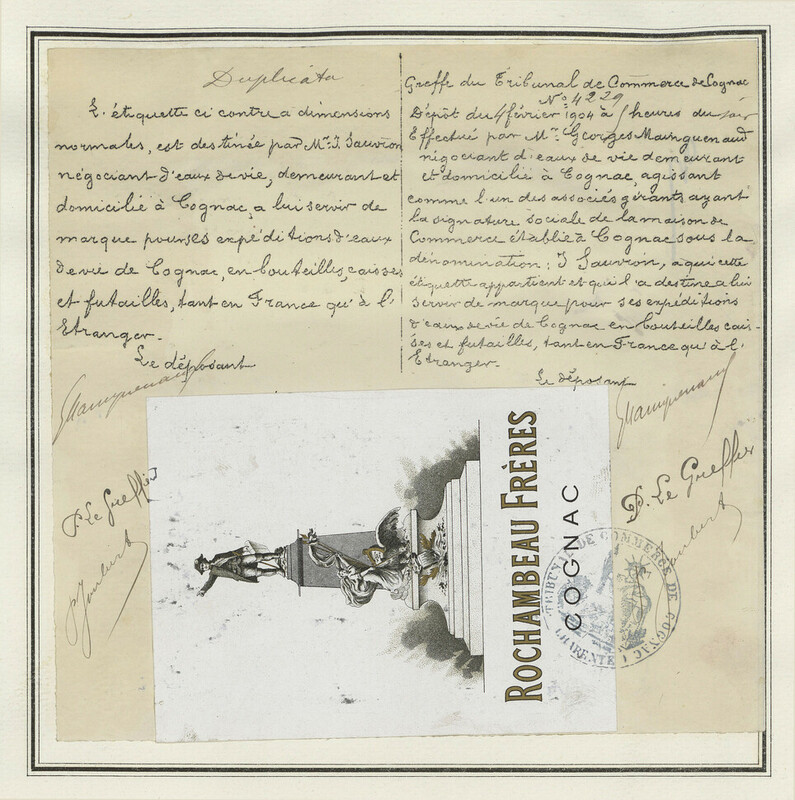 Duplicata
L'étiquette ci contre a dimensions
normales, est destinée par Mr. J. Sauvion
négociant d'eaux de vie, demeurant et
domicilié à Cognac, a lui servir de
marque pour ses expéditions d'eaux
de vie de Cognac, en bouteilles, caisses
et futailles, tant en France qu'à l'
Etranger.
Le déposant
Mainguenaud
P. Le Greffier
P. Joubert
Greffe du Tribunal de Commerce de Cognac
No. 4229
Dépôt du 4 février 1904 à 5 heures du soir
Effectué par Mr. Georges Mainguenaud
négociant d'eaux de vie demeurant
et domicilié à Cognac, agissant
comme l'un des associés gérants ayant
la signature sociale de la maison de
Commerce établie à Cognac sous la
dénomination: J Sauvion, a qui cette
étiquette appartient et qui l'a destine a lui
servir de marque pour ses expéditions
d'eaux de vie de Cognac en bouteilles cais-
ses et futailles, tant en France qu'à l'
Etranger.
Le déposant
Mainguenaud
P. Le Greffier
Joubert
ROCHAMBEAU FRÈRES
COGNAC
TRIBUNAL DE COMMERCE DE COGNAC
CHARENTE